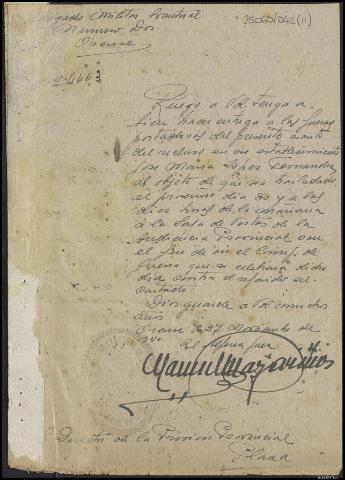 25060/042(11)
Juzgado Militar Eventual
Número Dos
Orense
Ruego a Vd. tenga a
bien hacer entrega a las fuerzas
portadoras del presente escrito
del recluso en ese establecimiento
Jose Maria Lopez Fernandez
al objeto de que sea trasladado
el próximo dia 30 y a las
diez horas de la mañana
a la Sala de Vistas de la
Audiencia Provincial con
el fin de oir el Consejo de
guerra que se celebrará dicho
dia contra el referido en-
cartado.
Dios guarde a Vd. muchos
años
Orense 27 Noviembre de
El Alferez Juez
Director de la Prision Provincial
Plaza